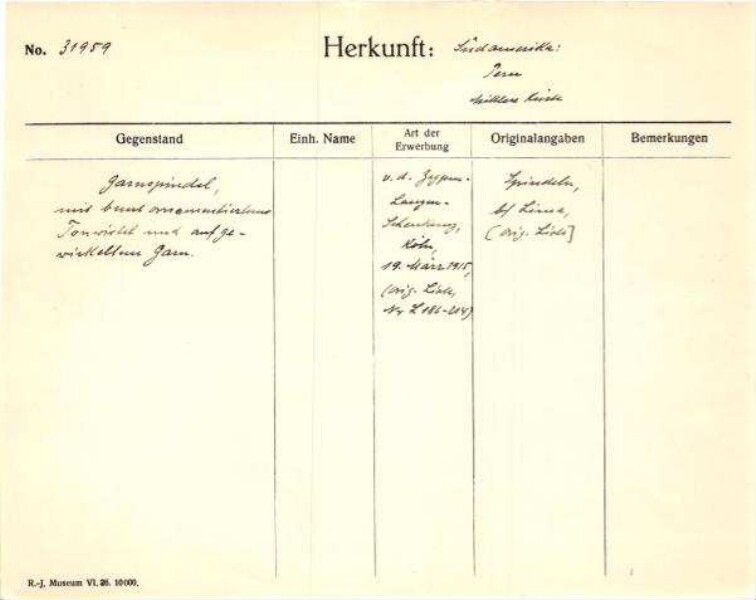 No. 31959
Herkunft: Südamerika:
Peru
Mittlere Küste
Gegenstand
Einh. Name
Art der
Erwerbung
Originalangaben
Bemerkungen
Garnspindel,
mit bunt ornamentiertem
Tonwirtel und aufge-
wickeltem Garn.
v. d. Zypen-
Langen-
Schenkung,
Köln,
19. März 1915,
(orig. Liste,
Nr L 186-204)
Spindeln,
bf Lima,
(orig. Liste]
R.-J. Museum VI. 26. 10000.